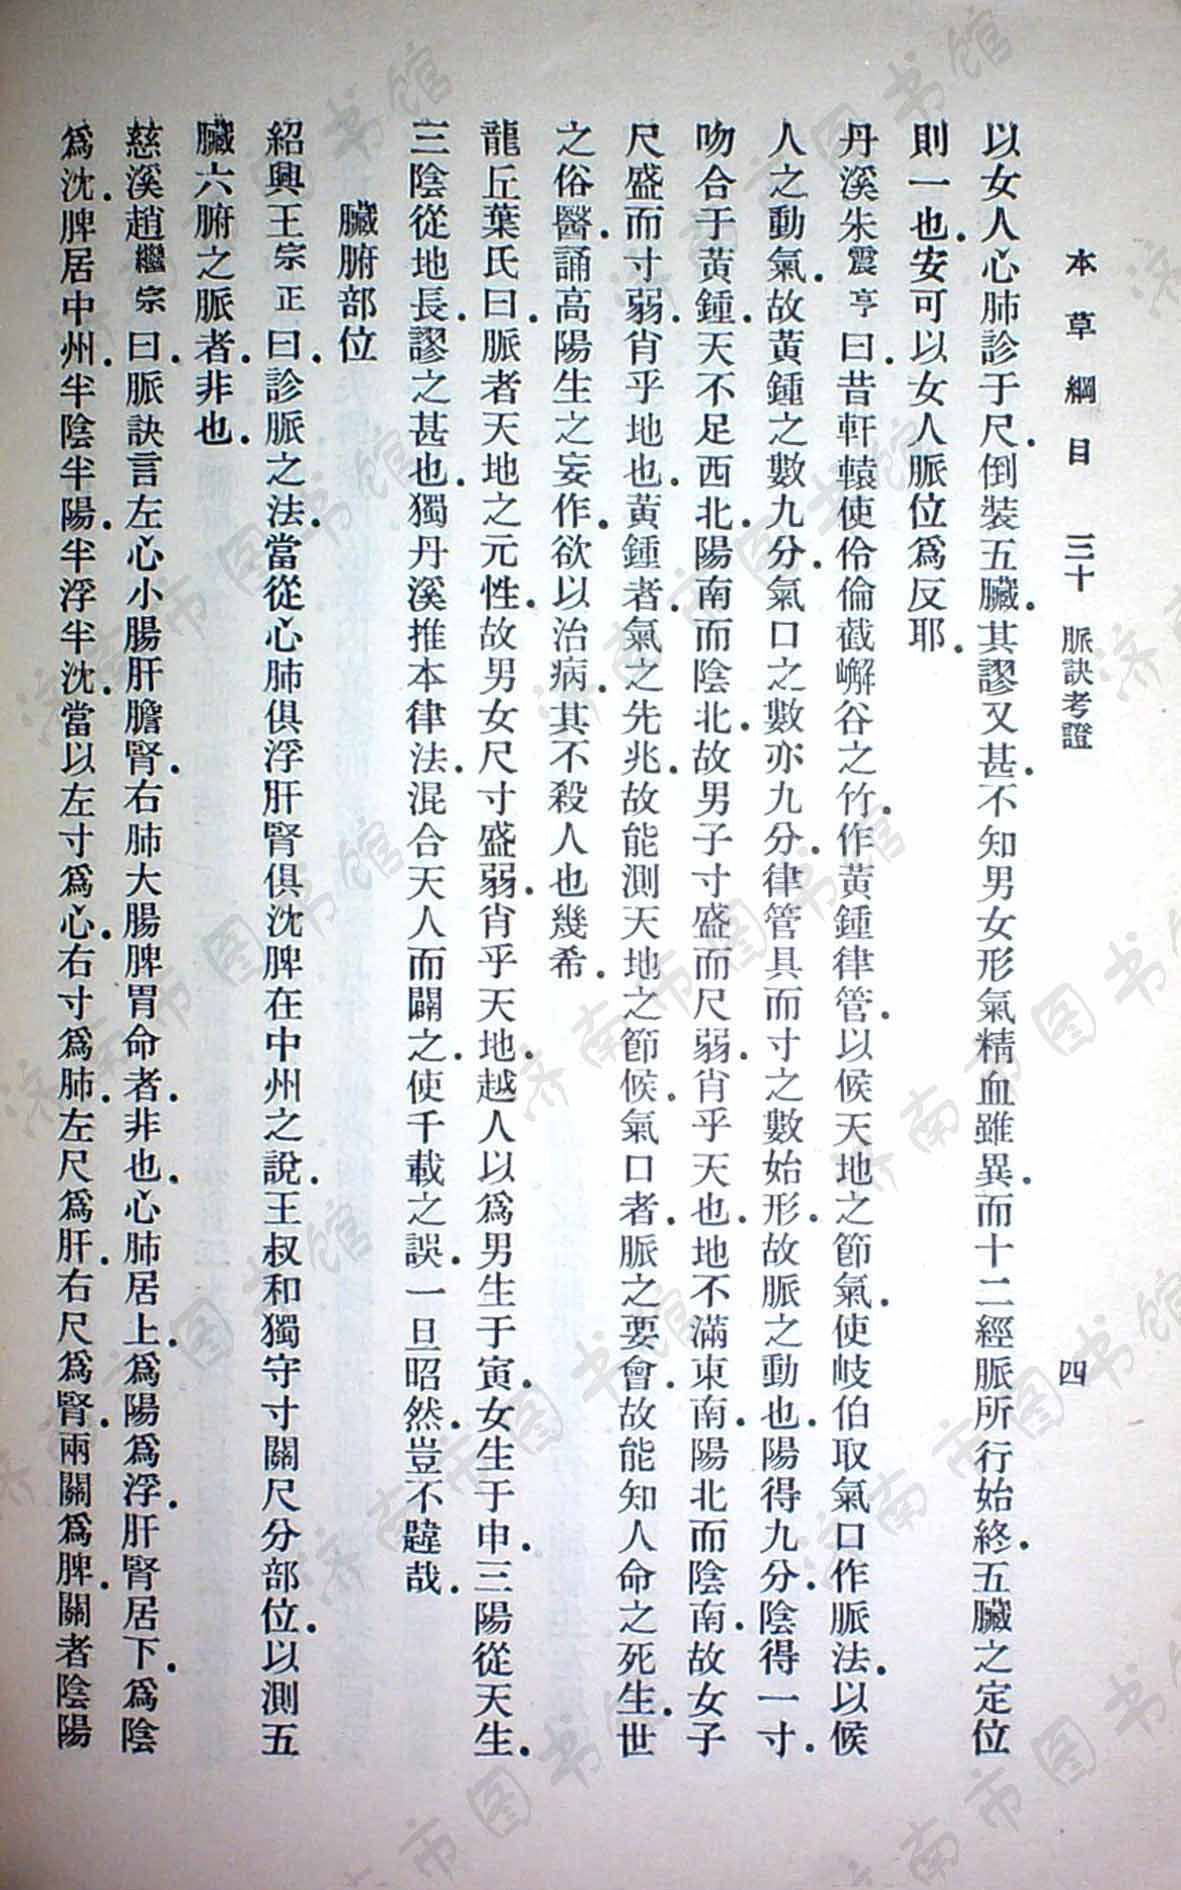 本草綱目　三十　脈訣考證　四
以女人心肺診于尺.倒裝五臟.其謬又甚.不知男女形氣精血雖異.而十二經脈所行始終.五臟之定位
則一也.安可以女人脈位爲反耶.
丹溪朱震亨曰.昔軒轅使伶倫截嶰谷之竹.作黃鍾律管.以候天地之節氣.使岐伯取氣口作脈法.以候
人之動氣.故黃鍾之數九分.氣口之數亦九分.律管具而寸之數始形.故脈之動也.陽得九分.陰得一寸.
吻合于黃鍾.天不足西北.陽南而陰北.故男子寸盛而尺弱.肖乎天也.地不滿東南.陽北而陰南.故女子
尺盛而寸弱.肖乎地也.黃鍾者.氣之先兆.故能測天地之節候.氣口者.脈之要會.故能知人命之死生.世
之俗醫.誦高陽生之妄作.欲以治病.其不殺人也幾希.
龍丘葉氏曰.脈者天地之元性.故男女尺寸盛弱.肖乎天地.越人以爲男生于寅.女生于申.三陽從天生.
三陰從地長.謬之甚也.獨丹溪推本律法.混合天人而闢之.使千載之誤.一旦昭然.豈不韙哉.
臟腑部位
紹興王宗正曰.診脈之法.當從心肺俱浮肝腎俱沈脾在中州之說.王叔和獨守寸關尺分部位.以測五
臟六腑之脈者.非也.
慈溪趙繼宗曰.脈訣言左心小腸肝膽腎.右肺大腸脾胃命者.非也.心肺居上.爲陽爲浮.肝腎居下.爲陰
爲沈.脾居中州.半陰半陽.半浮半沈.當以左寸爲心.右寸爲肺.左尺爲肝.右尺爲腎.兩關爲脾.關者陰陽